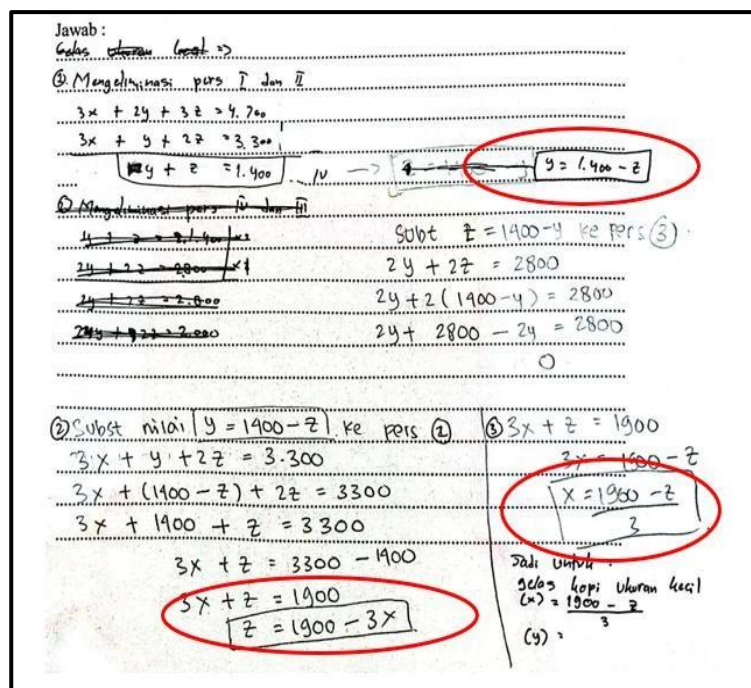 Jawab :
Gelas ukuran kecil =>
① Mengeliminasi pers I dan II
3x + 2y + 3z = 4.700
3x + y + 2z = 3.300
y + z = 1.400 ... IV → y = 1.400 - z
② Mengeliminasi pers IV dan III
2y + 2z = 2800 x1
2y + 2z = 2.800
Subt z = 1400 - y ke pers ③.
2y + 2z = 2800
2y + 2(1400 - y) = 2800
2y + 2800 - 2y = 2800
0
② Subst nilai y = 1400 - z ke pers ②
3x + y + 2z = 3.300
3x + (1400 - z) + 2z = 3300
3x + 1400 + z = 3300
3x + z = 3300 - 1400
3x + z = 1900
z = 1900 - 3x
③ 3x + z = 1900
3x = 1900 - z
x = 1900 - z
3
Jadi untuk :
gelas kopi ukuran kecil
(x) = 1900 - z
3
(y) =